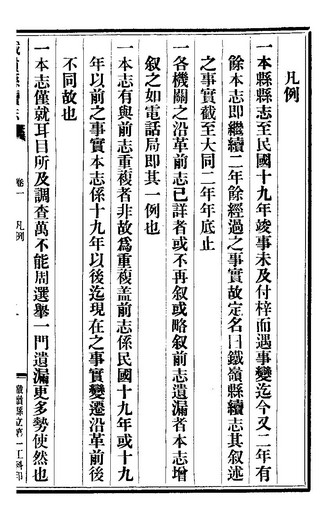 凡例
一本縣縣志至民國十九年竣事未及付梓而遇事變迄今又二年有
餘本志即繼續二年餘經過之事實故定名曰鐵嶺縣續志其叙述
之事實截至大同二年年底止
一各機關之沿革前志已詳者或不再叙或略叙前志遺漏者本志增
叙之如電話局即其一例也
一本志有與前志重複者非故爲重複蓋前志係民國十九年或十九
年以前之事實本志係十九年以後迄現在之事實變遷沿革前後
不同故也
一本志僅就耳目所及調查萬不能周選舉一門遺漏更多勢使然也
卷一
凡例
鐵嶺縣立第一工科印